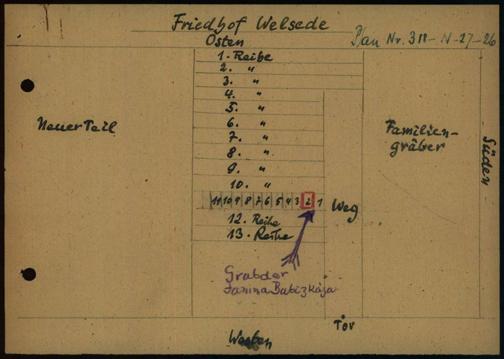 Friedhof Welsede
Osten
Plan Nr. 311-N-27-26
1. Reihe
2. "
3. "
4. "
5. "
6. "
7. "
8. "
9. "
10. "
Neuer Teil
Familien-
gräber
Süden
11 10 9 8 7 6 5 4 3 2 1
Weg
12. Reihe
13. Reihe
Grab der
Janina Babizkaja
Tor
Westen